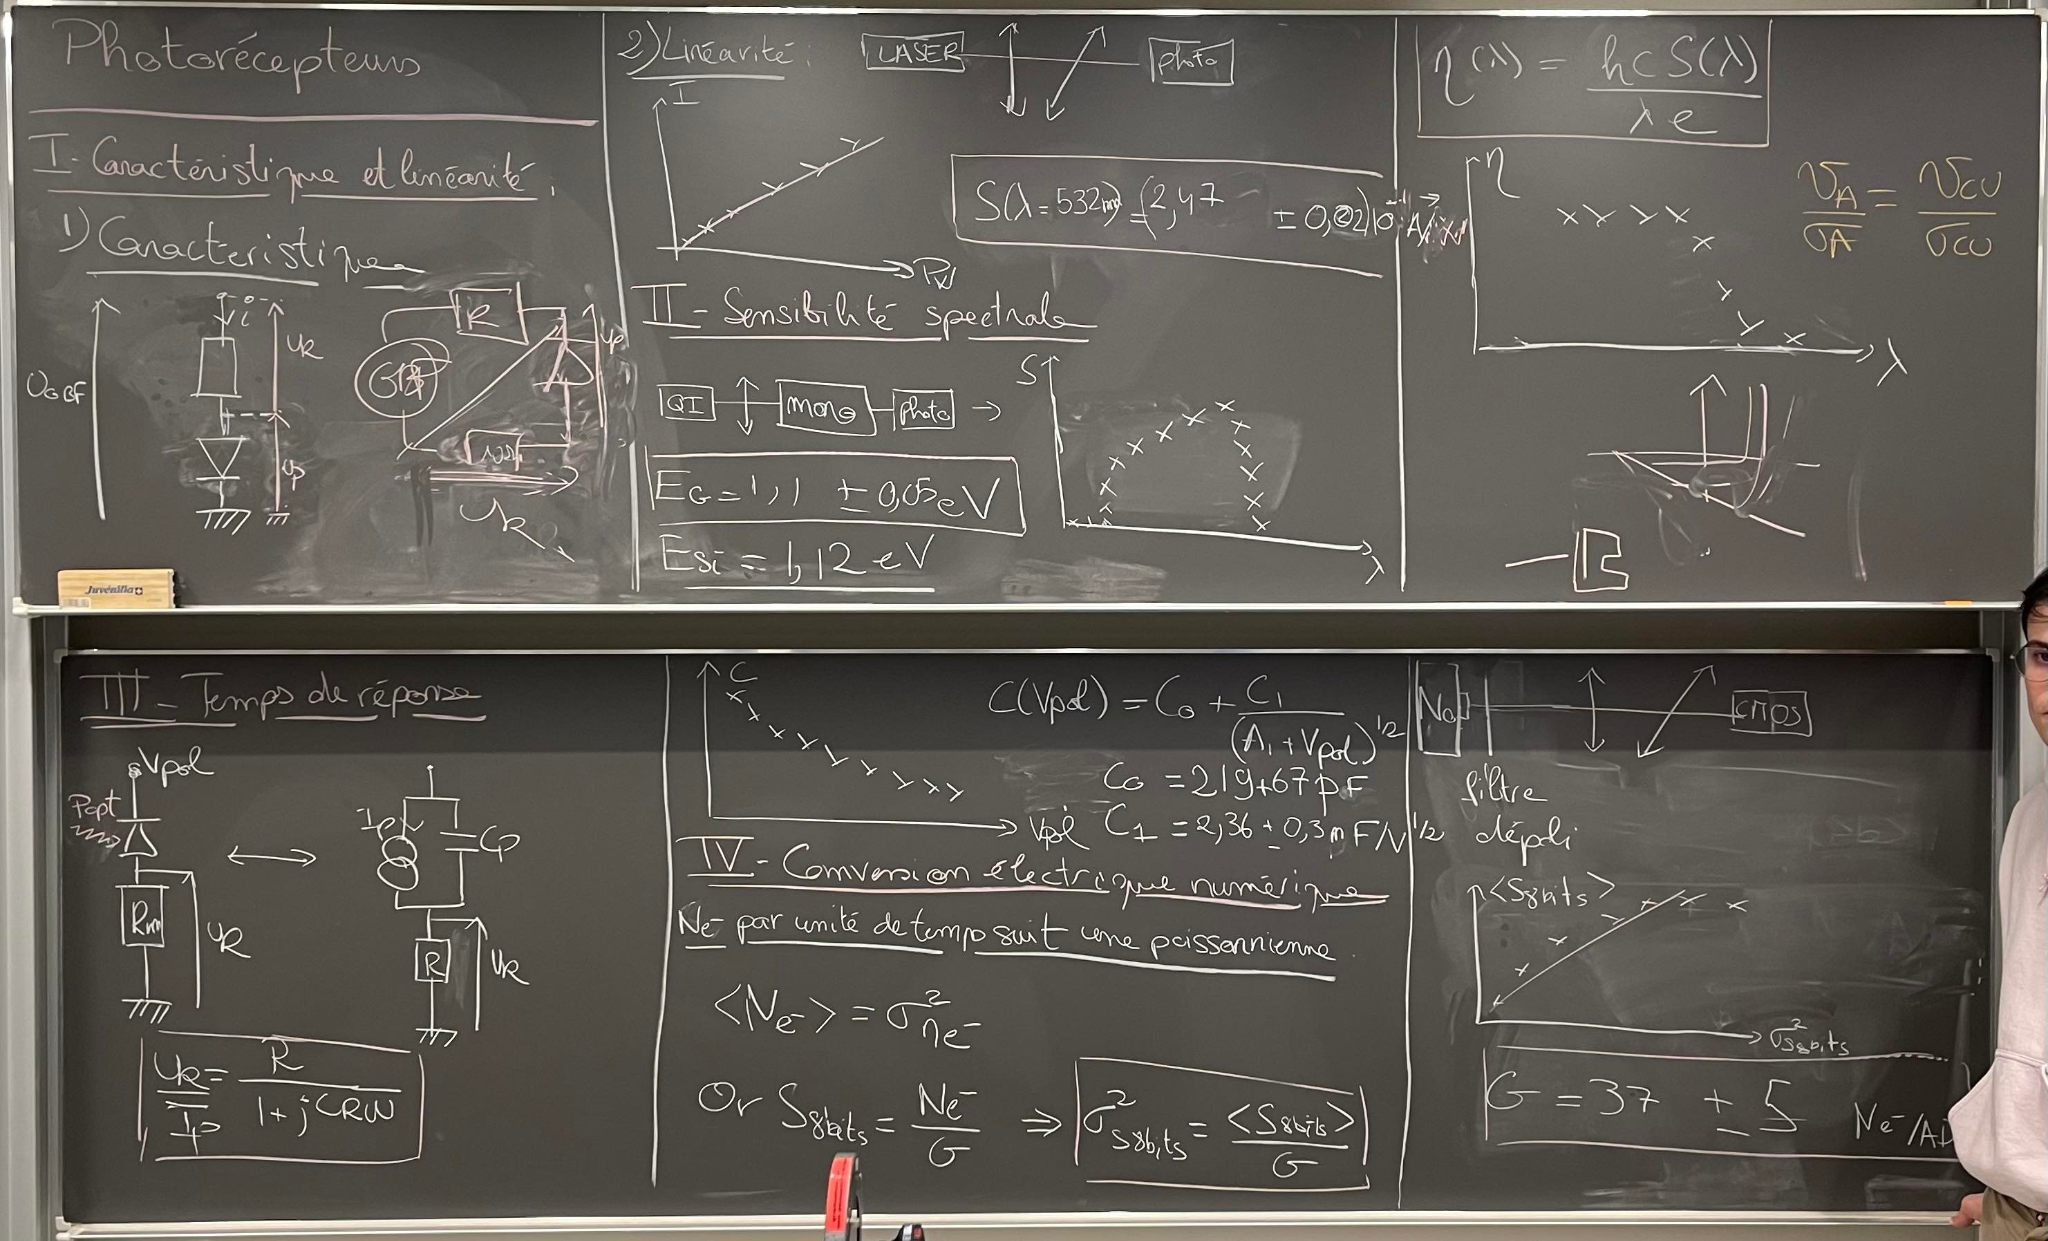 Photorécepteurs
I - Caractéristique et linéarité.
1) Caractéristique
UGBF
i
UR
Up
R
Up
10Ω
UR
Juvénilia
2) Linéarité :
LASER
photo
I
PW
S(λ = 532nm) = (2,47 ± 0,02)10⁻¹ A/W
II - Sensibilité spectrale
QI
mono
photo →
EG = 1,1 ± 0,05 eV
Esi = 1,12 eV
S
λ
η(λ) = hc S(λ) / λ e
η
λ
VA / σA = VCU / σCU
III - Temps de réponse
Vpol
Popt
Rm
UR
Ip
Cp
R
UR
UR / Ip = R / 1 + jCRω
C
Vpol
C(Vpol) = C0 + C1 / (A1 + Vpol)^1/2
C0 = 219±67 pF
C1 = 2,36 ± 0,3 nF/V^1/2
IV - Conversion électrique numérique
Ne⁻ par unité de temps suit une poissonnienne.
<Ne⁻> = σ²ne⁻
Or S8bits = Ne⁻ / G ⇒ σ²S8bits = <S8bits> / G
Na
CMOS
filtre
dépoli
<S8bits>
σ²S8bits
G = 37 ± 5 Ne⁻/AD